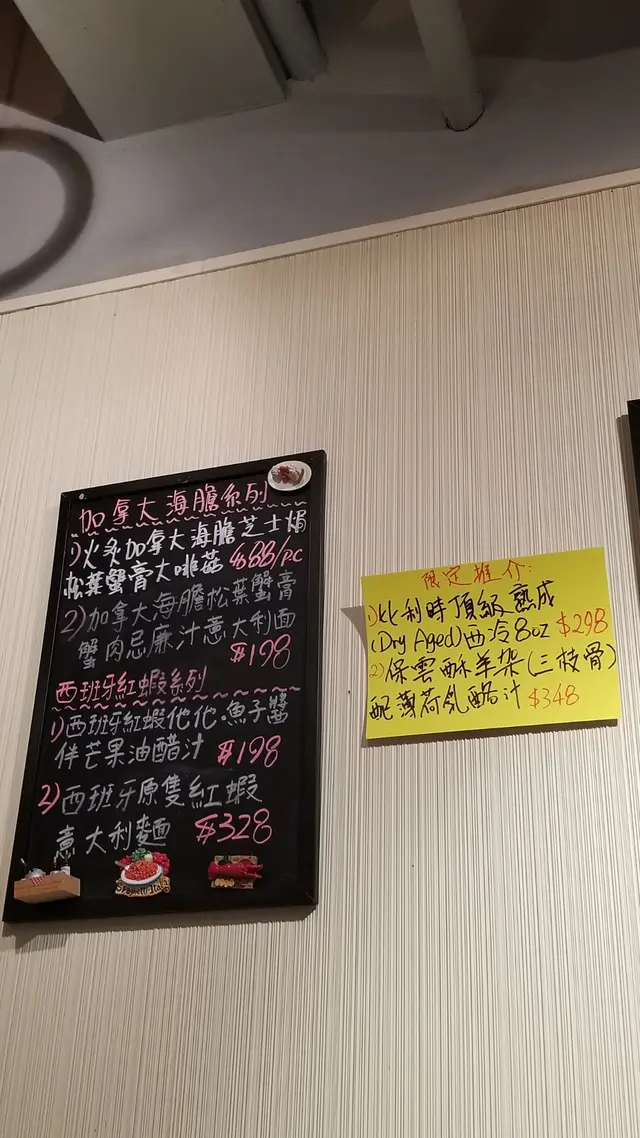 加拿大海膽系列
1)火炙加拿大海膽芝士焗
松葉蟹膏大啡菇 $88/PC
2)加拿大海膽松葉蟹膏
蟹肉忌廉汁意大利面
$198
西班牙紅蝦系列
1)西班牙紅蝦他他·魚子醬
伴芒果油醋汁 $198
2)西班牙原隻紅蝦
意大利麵 $328
限定推介:
1)比利時頂級熟成
(Dry Aged)西冷8oz $298
2)保雲酥羊架(三枝骨)
配薄荷乳酪汁 $348